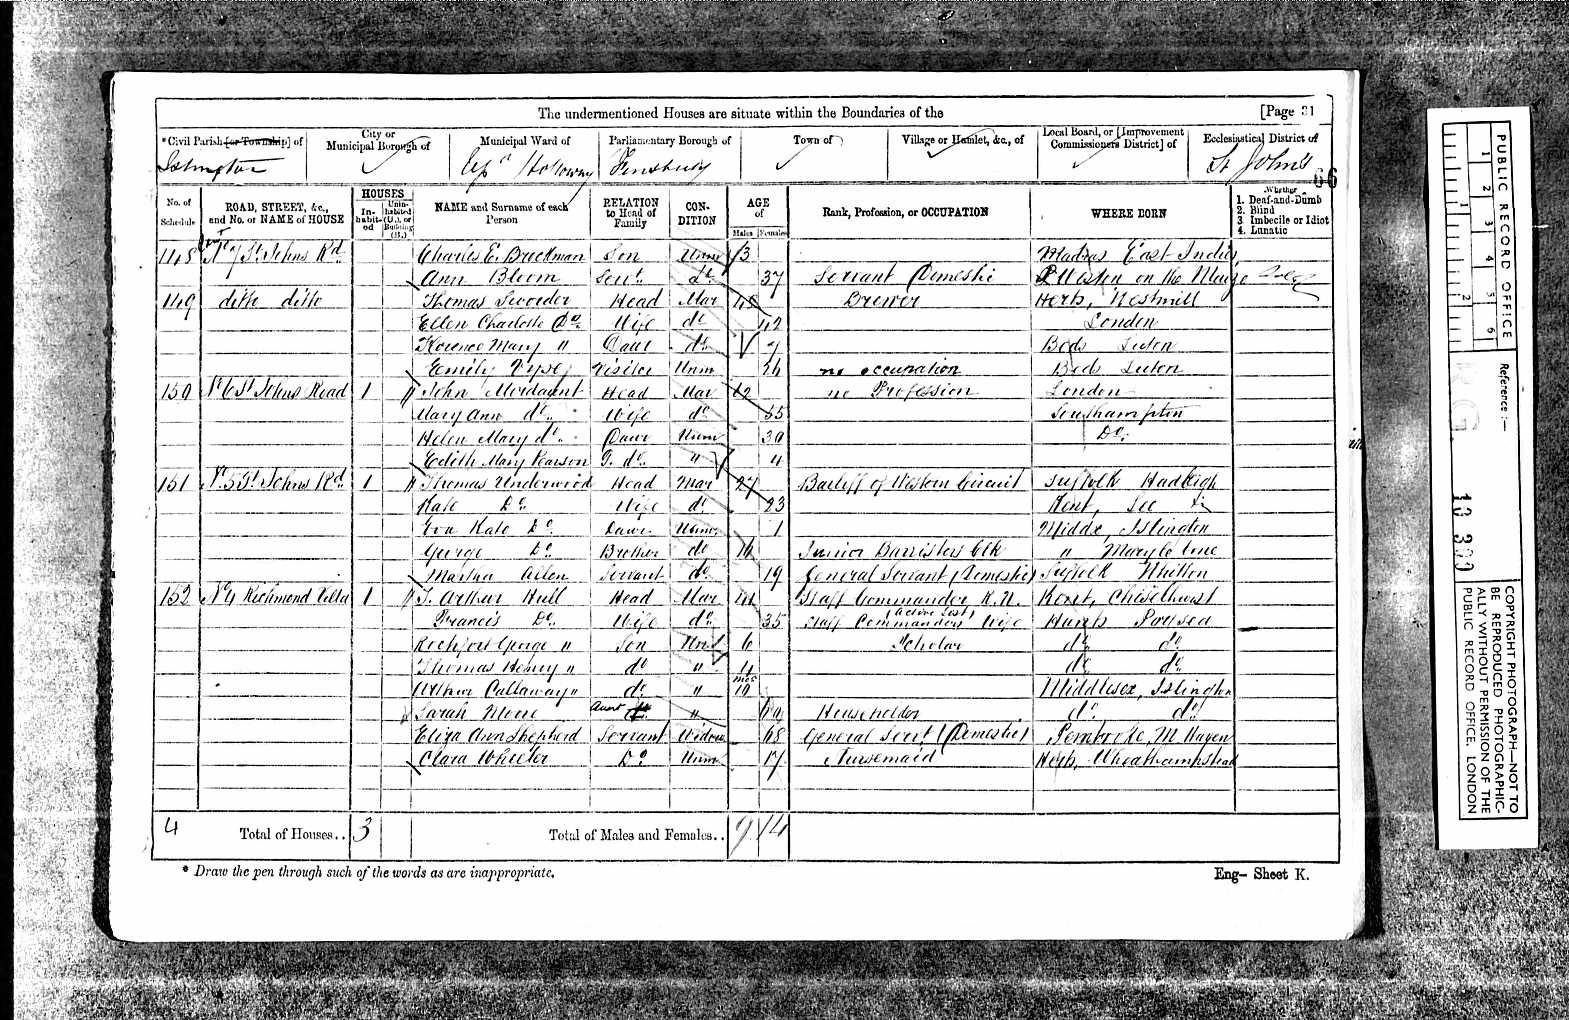 The undermentioned Houses are situate within the Boundaries of the [Page 31
*Civil Parish [or Township] of City or Municipal Borough of Municipal Ward of Parliamentary Borough of Town of Village or Hamlet, &c., of Local Board, or [Improvement Commissioners District] of Ecclesiastical District of
Islington Upr Holloway Finsbury St Johns
66
No. of Schedule ROAD, STREET, &c., and No. or NAME of HOUSE HOUSES Inhabited Uninhabited (U.), or Building (B.) NAME and Surname of each Person RELATION to Head of Family CONDITION AGE of Males Females Rank, Profession, or OCCUPATION WHERE BORN Whether 1. Deaf-and-Dumb 2. Blind 3. Imbecile or Idiot 4. Lunatic
148 No 7 St Johns Rd Charles E. Breckman Son Unm 13 Madras East Indies
Ann Bloom Servt Do 37 Servant Domestic Weston on the
149 ditto ditto Thomas Sworder Head Mar Brewer Herts, Westmill
Ellen Charlotte Do Wife do 42 London
Florence Mary " Daur do 7 Beds Luton
Emily Vyse Visitor Unm 26 no occupation Beds Luton
150 No 6 St Johns Road 1 John Mordaunt Head Mar 62 no Profession London
Mary Ann do Wife do 55 Southampton
Helen Mary do Daur Unm 30 Do
Edith Mary Pearson G. do " 4
151 No 5 St Johns Rd 1 Thomas Underwood Head Mar 27 Bailiff of Western Circuit Suffolk Hadleigh
Kate Do Wife do 23 Kent, Lee
Eva Kate Do Daur Unm 1 Middx Islington
George Do Brother do 16 Junior Barristers Clk " Marylebone
Martha Allen Servant do 19 General Servant (Domestic) Suffolk Whitton
152 No 4 Richmond Villa 1 T. Arthur Hull Head Mar 41 Staff Commander R.N. Kent, Chiselhurst
(active List)
Francis Do Wife do 35 Staff Commanders Wife Hants Portsea
Rochfort George " Son Unm 6 Scholar do do
Thomas Henry " do " 4 do do
Arthur Callaway " do " 10 mos Middlesex, Islington
Sarah Moore Aunt " Householder do do
Eliza Ann Shepherd Servant Widow 68 General Servt (Domestic) Pembroke, M Haven
Clara Wheeler Do Unm 17 Nursemaid Herts, Wheathampstead
4 Total of Houses.. 3 Total of Males and Females.. 9 14
* Draw the pen through such of the words as are inappropriate. Eng- Sheet K.
PUBLIC RECORD OFFICE
1 2 3 4 5 6
1 2
Reference:—
RG 10 300
COPYRIGHT PHOTOGRAPH—NOT TO
BE REPRODUCED PHOTOGRAPHIC-
ALLY WITHOUT PERMISSION OF THE
PUBLIC RECORD OFFICE, LONDON